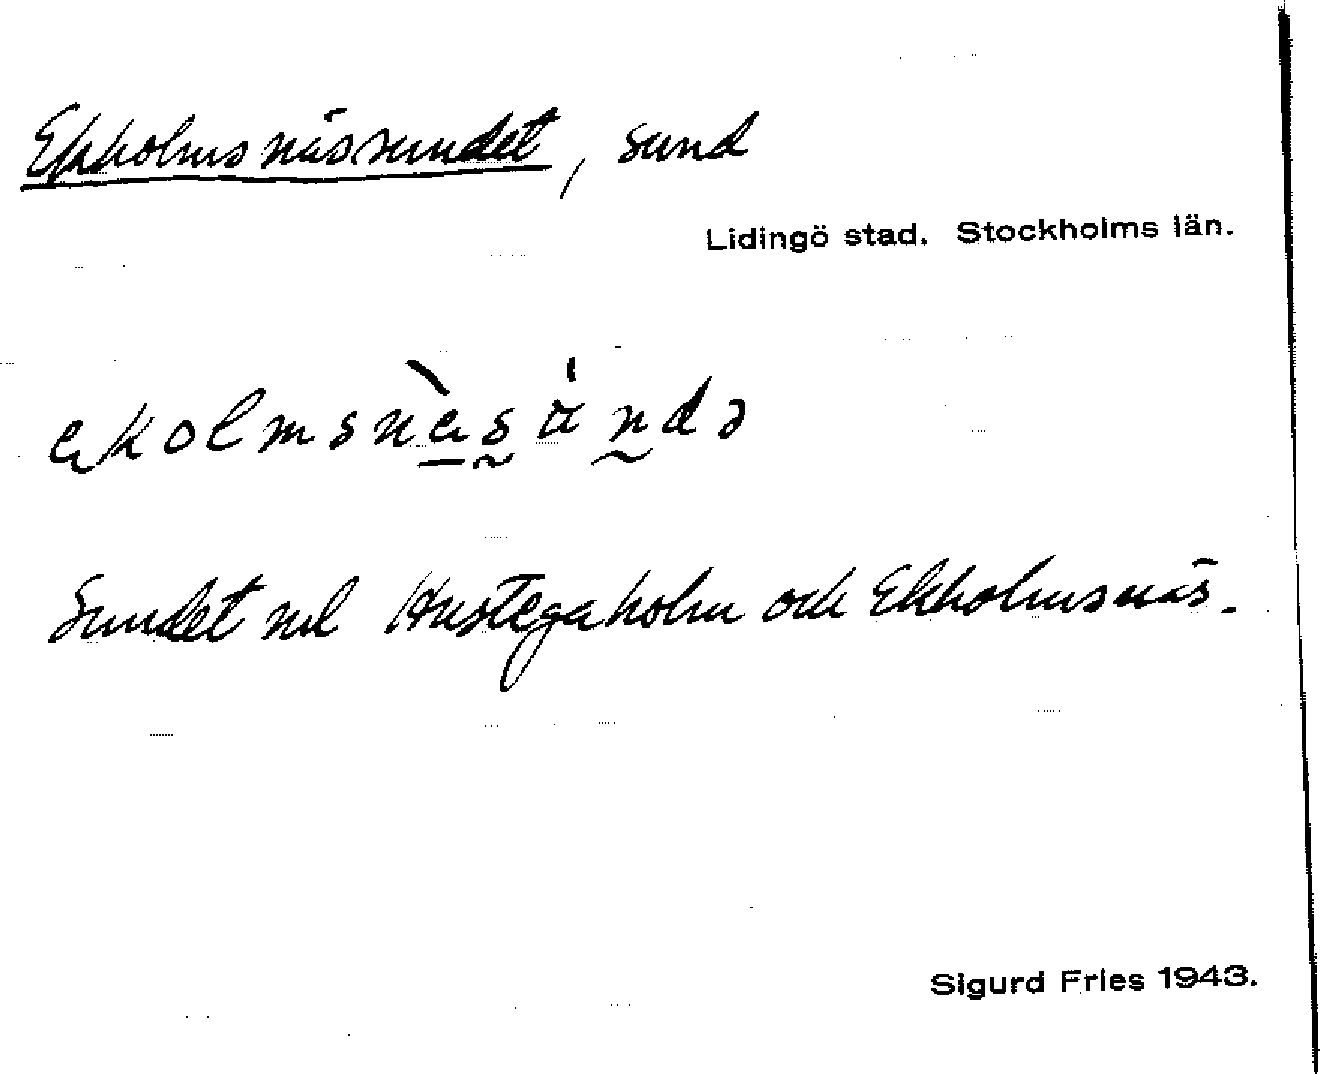 Ekholmsnässundet, sund
Lidingö stad. Stockholms län.
Sundet mel Hustegaholm och Ekholmsnäs.
Sigurd Fries 1943.